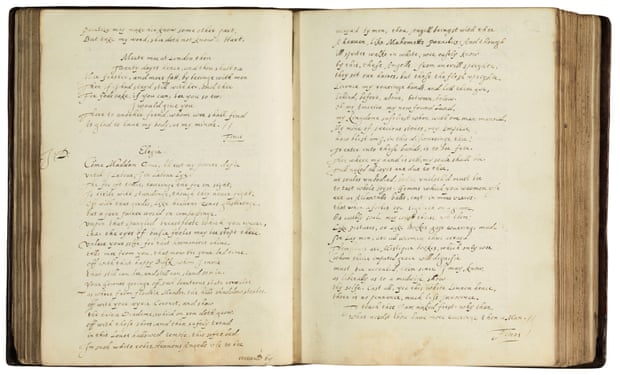 But take my word, you doe not know a Hart.
Meete mee at London, then
Twenty dayes hence, and thou shalt see
Mee fresher, and more fat, by beeing with men
Then if I had stayd still with her, and thee
For Gods sake, if you can, bee you so too,
I would give you
There to another frend, whom wee shall find
As glad to have my body, as my minde.
Finis
Elegia.
Come Maddam Come, all rest my powers defie
Untill I Labour, I in Labour Lye.
The foe oft times, having the foe in sight,
Is tir'de with standing, though they never fight,
Off with that girdle, like heavens zone glistering,
but a farr fairer world incompassing.
Unpin that spangled breastplate which you weare,
That the eyes of busie fooles may be stopt there.
Unlace your selfe, for that harmonious chime,
tells mee from you, that now tis your bed time.
off with that happy Buske, whom I envie
That still can bee, and still can stand so nie.
Your gownes goinge off, such beauteous state reveales
as when from flowrie Meades, the hills shaddow steales
off with your wyrie Coronet, and showe
the hairie Diademe, which on you doth growe.
off with those shooes, and then safely tread
in this Loves hallowed temple, this soft bed.
In such white robes, heavens Angells use to bee
receavd by
receavd by men, thou Angell bringst with thee
A heaven, like Mahomets Paradice, and though
Ill spirits walke in white, wee easily know
by this, these Angells, from an evill sprighte,
they set our haires, but these the flesh uprighte.
License my roaveinge hands, and let them goe,
behind, before, above, between, below.
Oh my America, my new found land,
my Kingdome safeliest when with one man man'd.
My mine of precious stones, my Emperie,
how blest am I, in this discoveringe thee!
To enter into these bonds, is to bee free.
Then where my hand is sett, my seale shall bee
Full nakednes all ioyes are due to thee,
as soules unbodied, bodies uncloth'd must be
to tast whole ioyes. Gemms which you weomen use
are as Atlanta's balls, cast in mens viewes.
Like pictures, or like Bookes gay coveringes made
For lay men, are all weomen thus arraid.
Themselves are Mistique bookes, which only wee
whom their imputed grace will dignifie
must see reveal'd, then since I may know,
as liberally as to a midwife, show
thy selfe. Cast all, yea this white Linnen hence,
there is no pennance, much less innocence.
To teach thee I am naked first, why then
What needst thou have more coveringe then a Man.
Finis